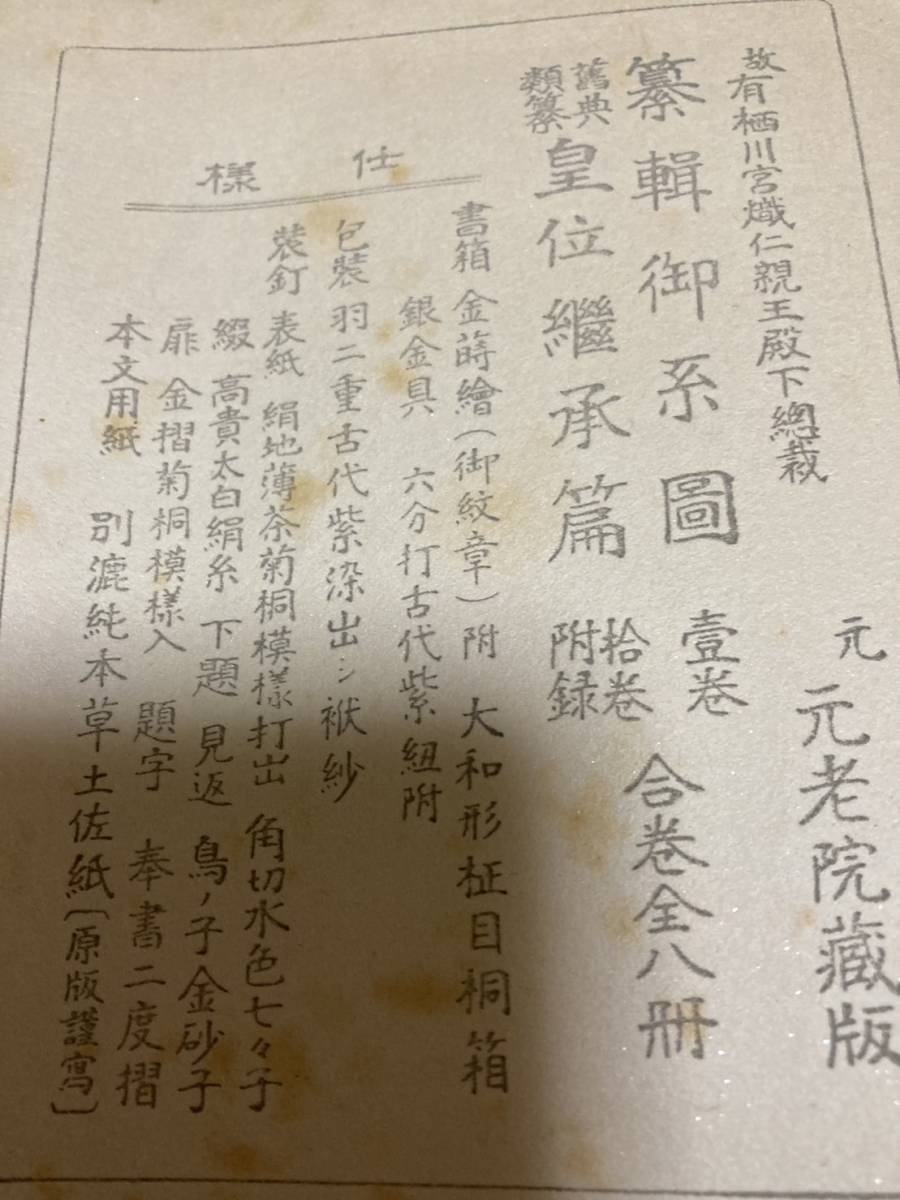 故有栖川宮熾仁親王殿下總裁
元 元老院藏版
纂輯御系圖 壹卷
舊典類纂 皇位繼承篇 拾卷附録
合卷全八冊
仕樣
書箱 金蒔繪(御紋章)附 大和形柾目桐箱
銀金具 六分打古代紫紐附
包裝 羽二重古代紫染出シ袱紗
裝釘 表紙 絹地薄茶菊桐模樣打出 角切水色七々子
綴 高貴太白絹糸 下題 見返 鳥ノ子金砂子
扉 金摺菊桐模樣入 題字 奉書二度摺
本文用紙 別漉純本草土佐紙〔原版謹寫〕